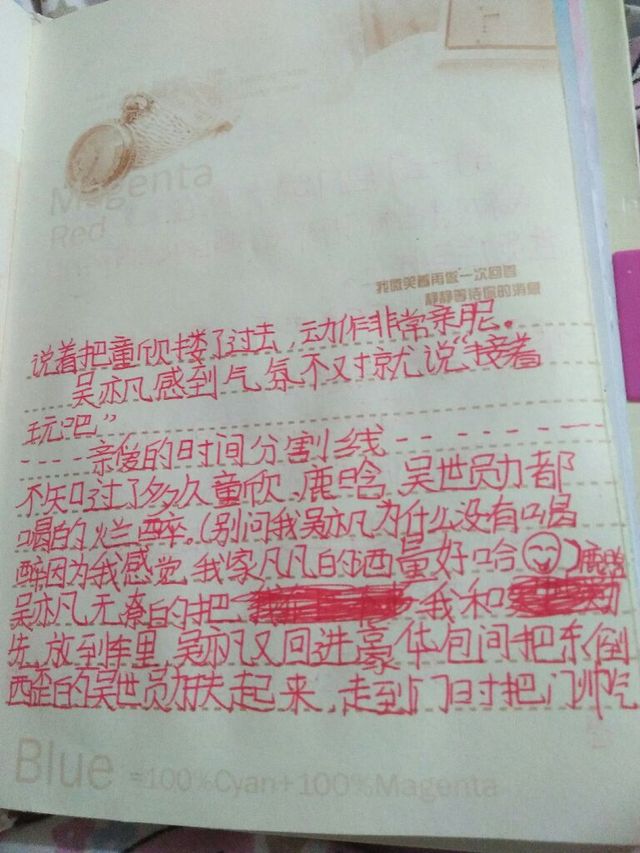 Magenta
Red
我微笑着再做一次回看
静静等待你的消息
说着把童欣搂了过去，动作非常亲昵。
吴亦凡感到气氛不对就说“接着
玩吧”
----亲爱的时间分割线-------
不知过了多久童欣、鹿晗、吴世勋都
喝的烂醉。(别问我吴亦凡为什么没有喝
醉因为我感觉我家凡凡的酒量好哈)鹿晗
吴亦凡无奈的把 我和
先放到车里，吴亦凡又回进豪体包间把东倒
西歪的吴世勋扶起来，走到门口时把门帅气
Blue =100%Cyan+100%Magenta